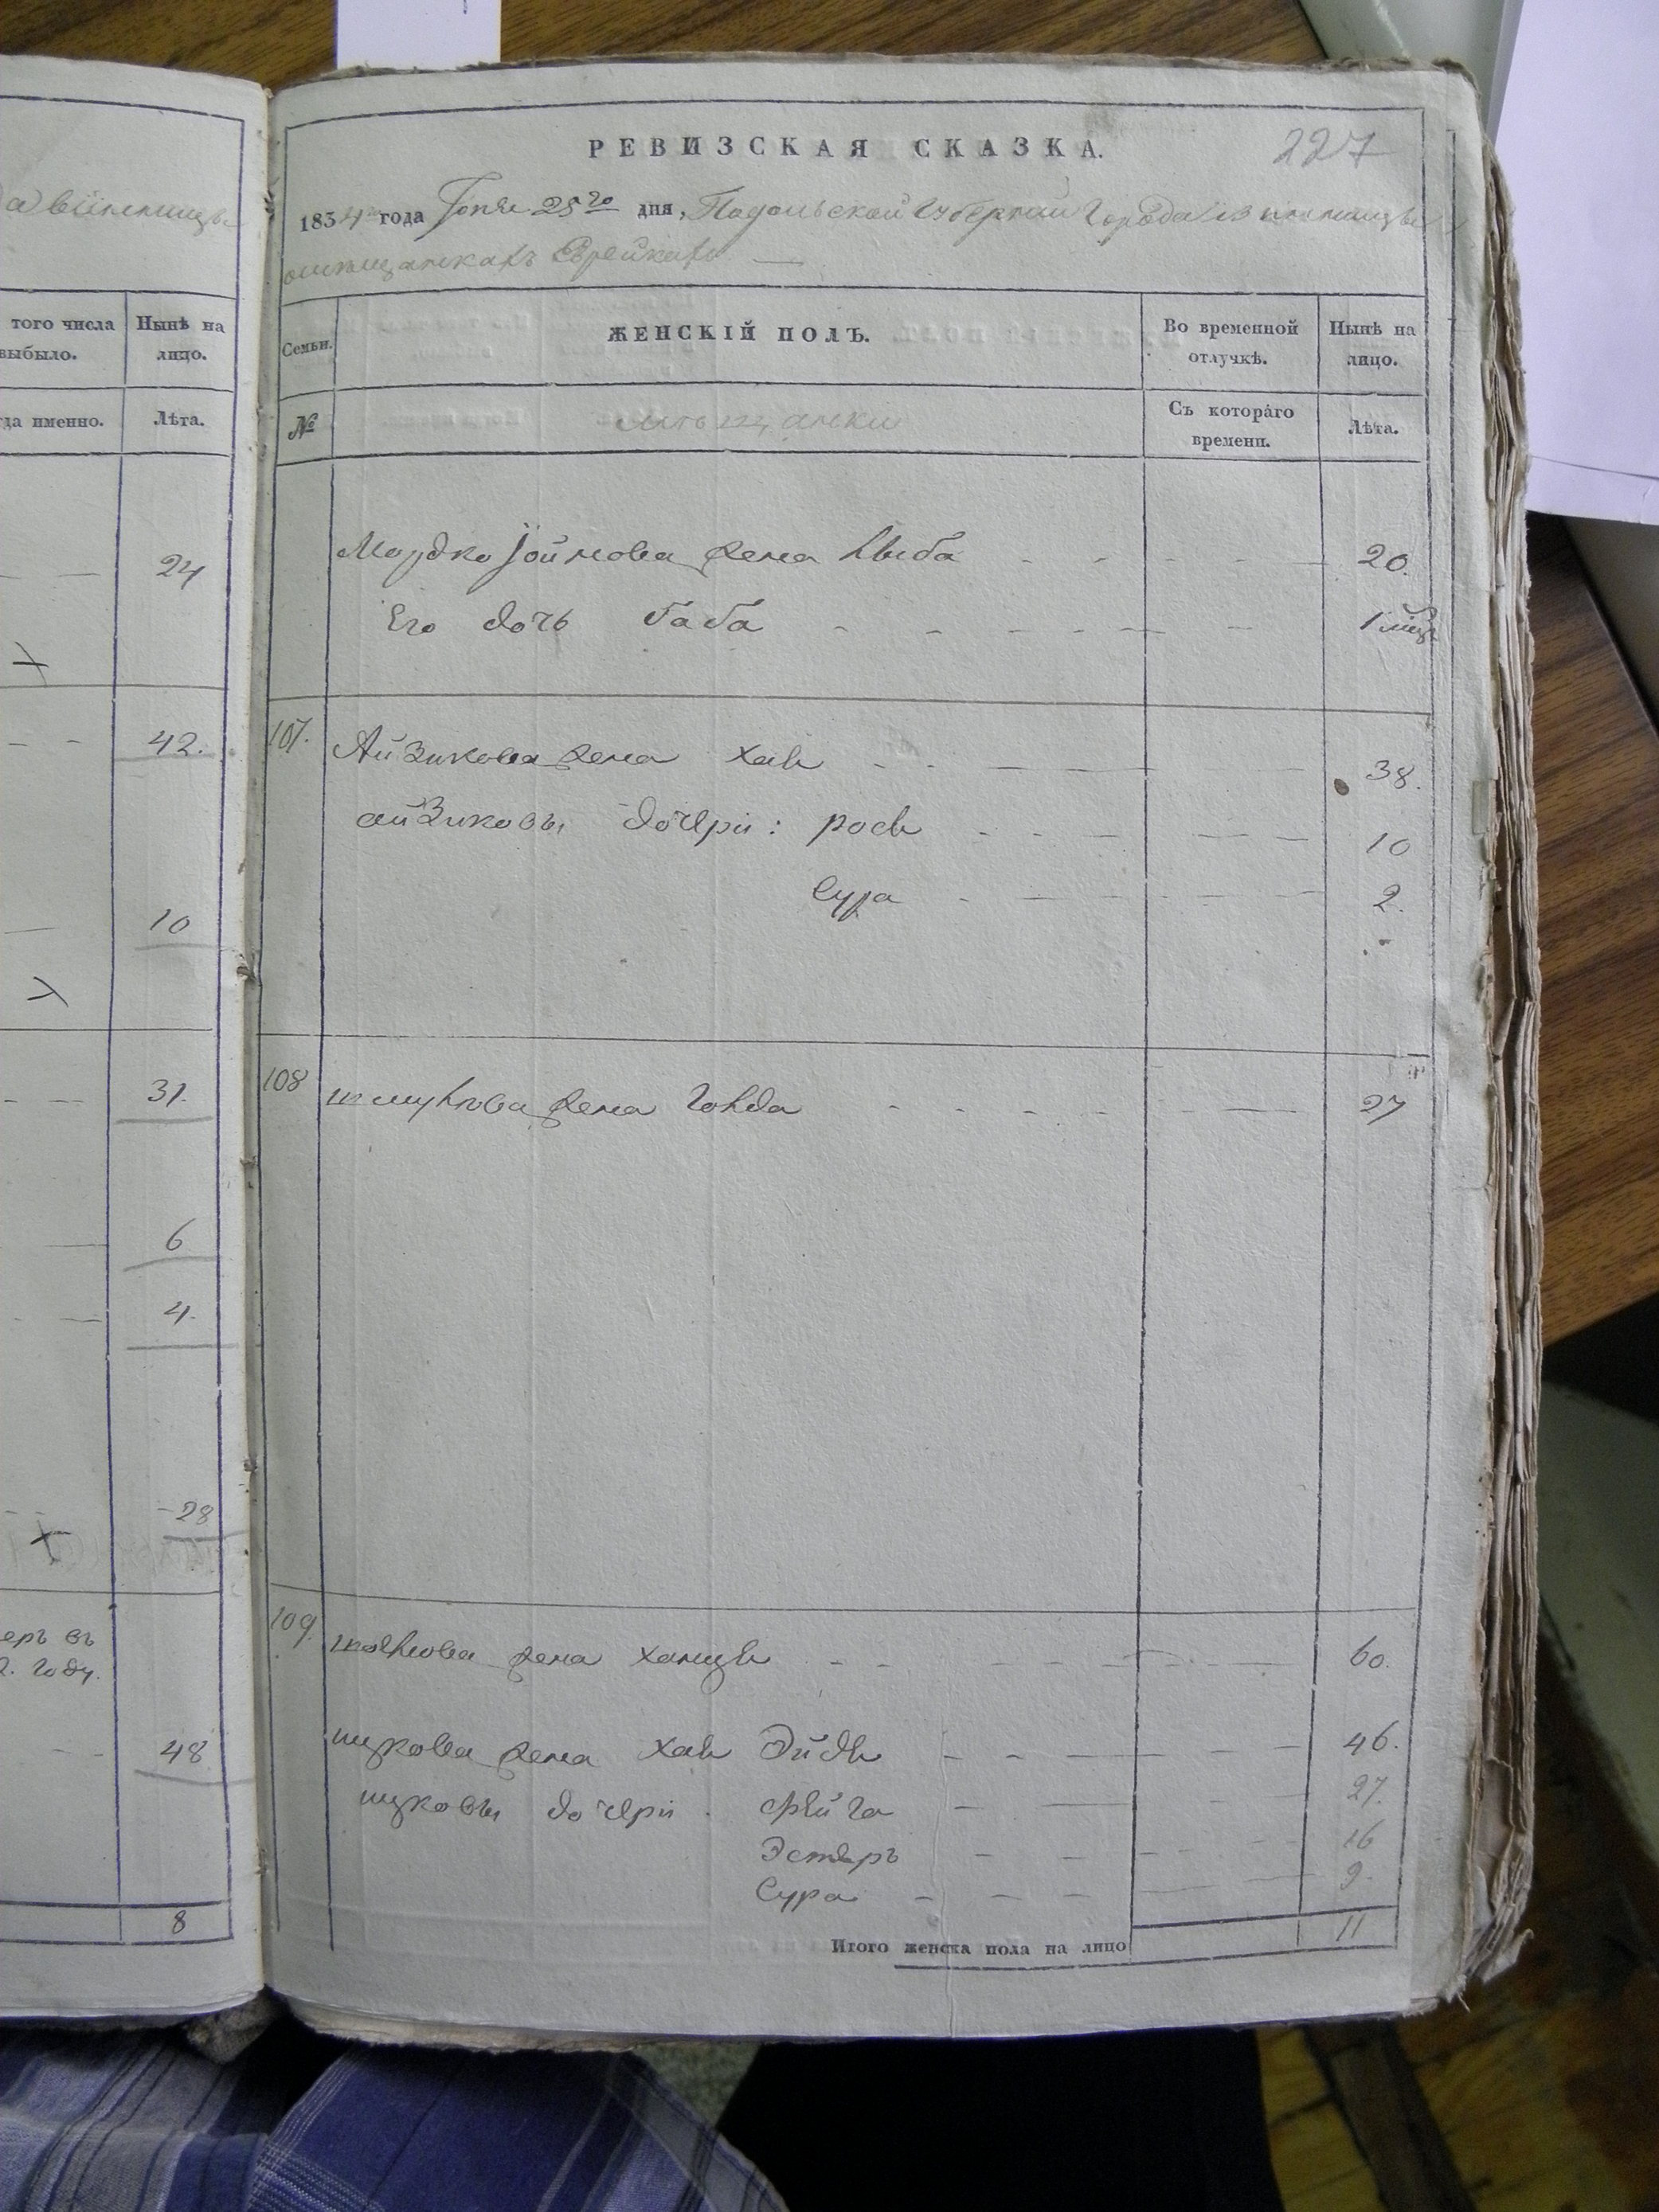 а винницы
того числа
выбыло.
Нынѣ на
лицо.
да именно.
Лѣта.
24
42.
10
31.
6
4.
28
еръ въ
году.
48
8
227
РЕВИЗСКАЯ СКАЗКА.
1834 года 25го дня, Подольской Губернии Города Винницы
о мѣщанкахъ Еврейкахъ
Семьи.
ЖЕНСКІЙ ПОЛЪ.
Во временной
отлучкѣ.
Нынѣ на
лицо.
№
мѣщанки
Съ котораго
времени.
Лѣта.
Мордко Іойнова жена Лыба 20.
Его дочь баба 1 мѣц
107. Айзикова жена хая 38.
айзиковы дочери: рося 10
Сура 2.
108 шмулiова жена голда 27
109. жена ханця 60.
ицкова жена хая Эйдя 46.
ицковы дочери фейга 27.
Эстеръ 16
Сура 9.
Итого женска пола на лицо 11